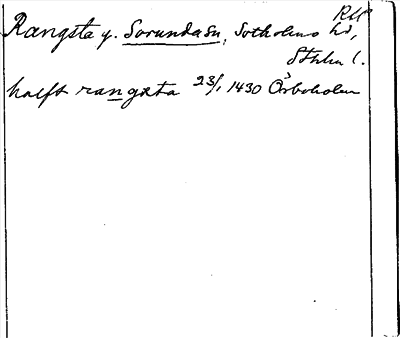 RAP
Rangsta g. Sorunda sn, Sotholms hd,
Sthlm l.
halft rangxta 23/1 1430 Örboholm